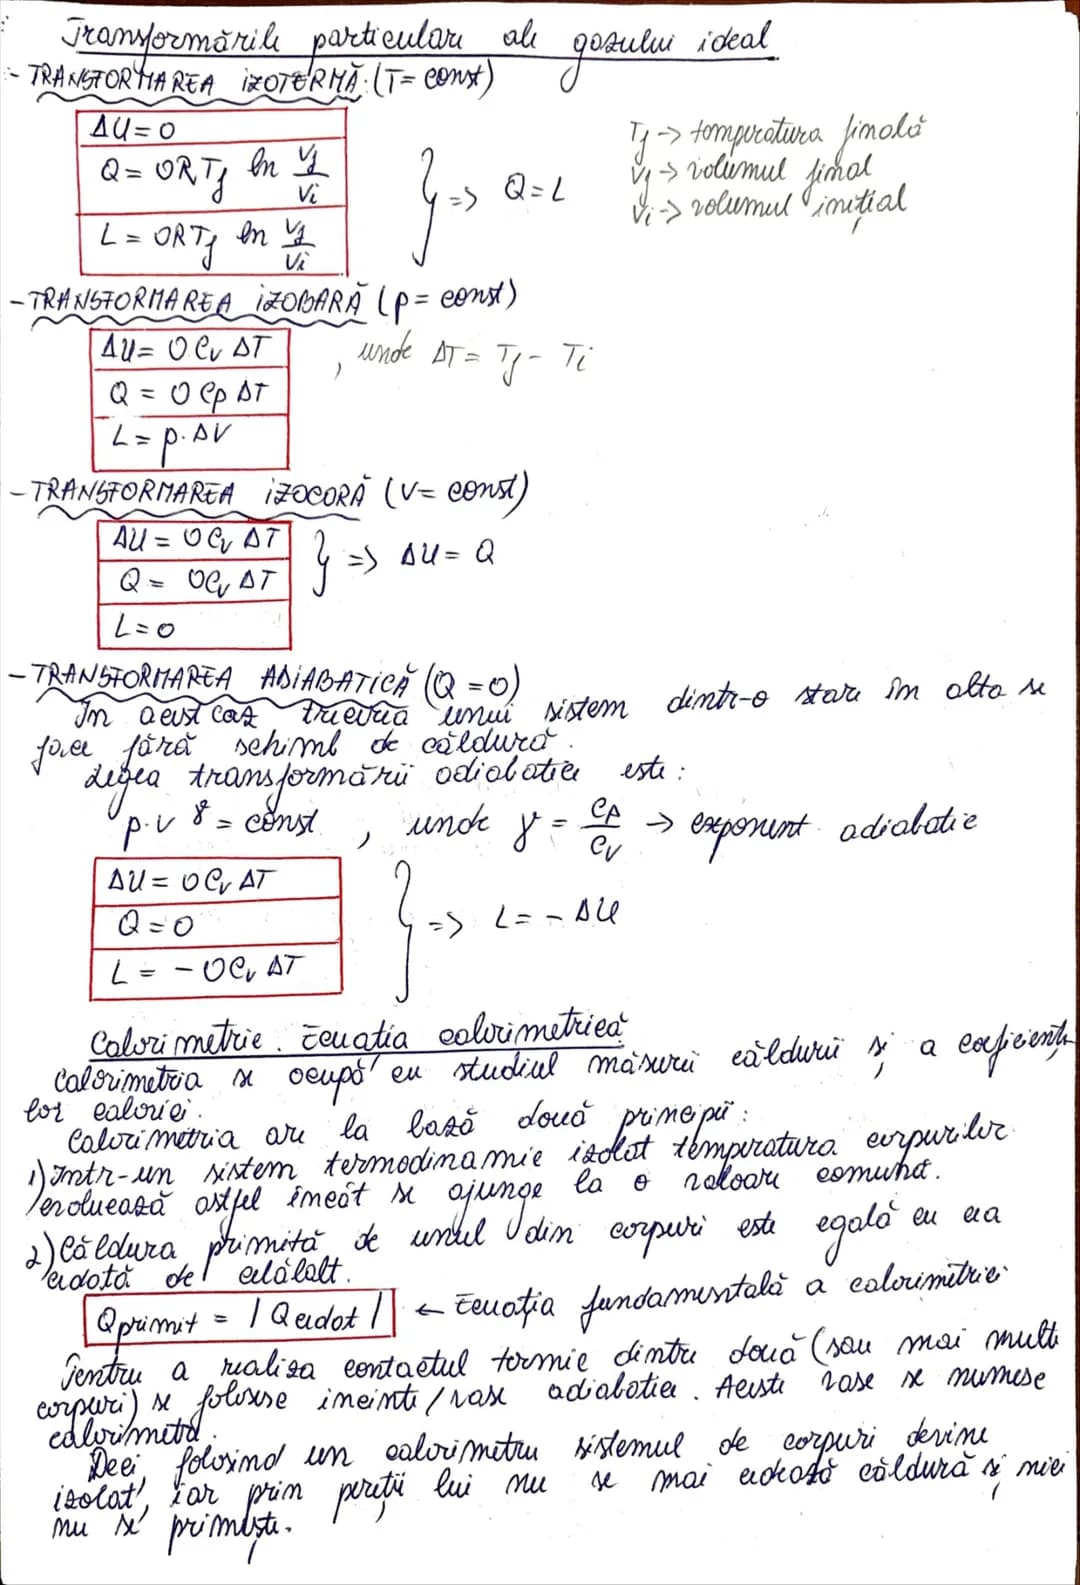 Transformările particulare ale gazului ideal
- TRANSFORMAREA IZOTERMĂ: (T= const)
ΔU=0
Q= υRTf ln Vf/Vi
L= υRTf ln Vf/Vi
} => Q=L
Tf -> temperatura finală
Vf -> volumul final
Vi -> volumul inițial
- TRANSFORMAREA IZOBARĂ (p= const)
ΔU= υCv ΔT
, unde ΔT= Tf - Ti
Q= υCp ΔT
L= p·ΔV
- TRANSFORMAREA IZOCORĂ (V= const)
ΔU= υCv ΔT
Q= υCv ΔT
} => ΔU= Q
L=0
- TRANSFORMAREA ADIABATICĂ (Q=0)
În acest caz trecerea unui sistem dintr-o stare în alta se
face fără schimb de căldură.
Legea transformării adiabatice este:
p·v^γ = const , unde γ = Cp/Cv -> exponent adiabatic
ΔU= υCv ΔT
Q=0
L= -υCv ΔT
} => L= -ΔU
Calorimetrie. Ecuația calorimetrică
Calorimetria se ocupă cu studiul măsurii căldurii și a coeficienți
lor calorici.
Calorimetria are la bază două principii:
1) Într-un sistem termodinamic izolat temperatura corpurilor
evoluează astfel încât se ajunge la o valoare comună.
2) Căldura primită de unul din corpuri este egală cu cea
cedată de celălalt.
Qprimit = |Qcedat| ← Ecuația fundamentală a calorimetriei
Pentru a realiza contactul termic dintre două (sau mai multe
corpuri) se folosesc incinte/vase adiabatice. Aceste vase se numesc
calorimetre.
Deci, folosind un calorimetru sistemul de corpuri devine
izolat, iar prin pereții lui nu se mai cedează căldură și nici
nu se primește.